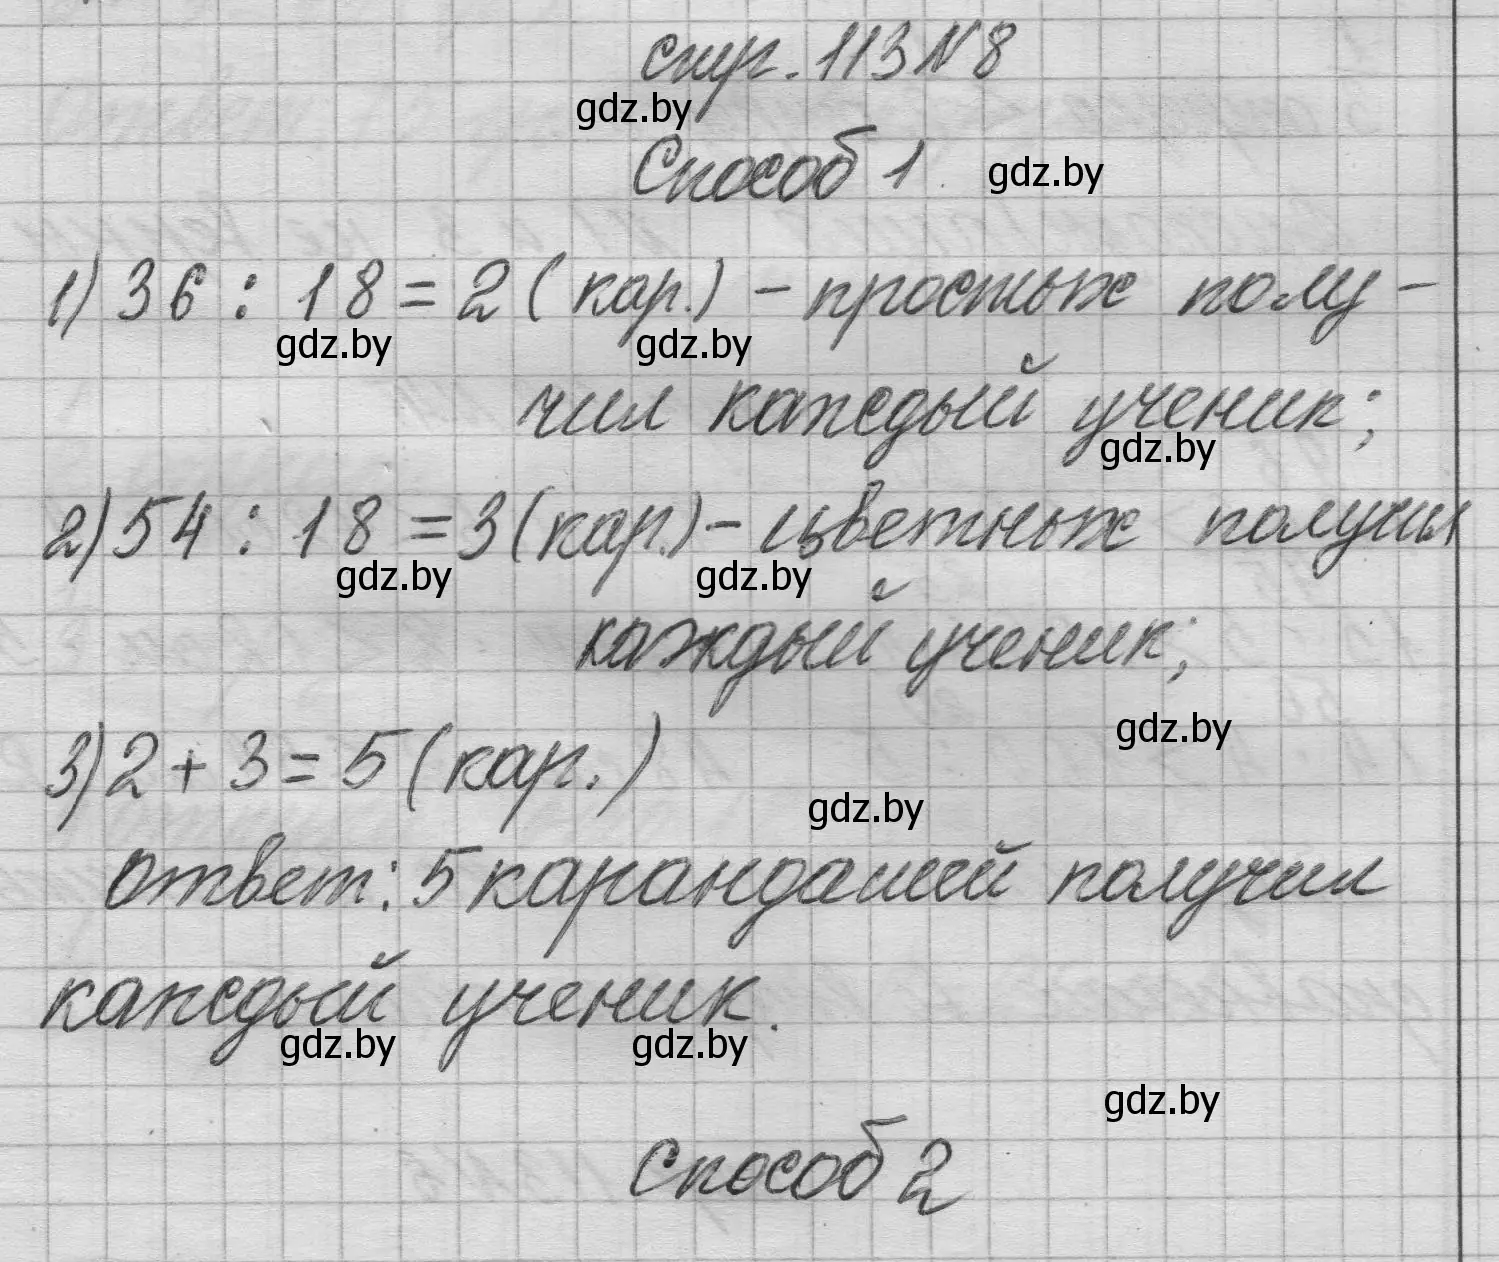 стр. 113 N 8
gdz.by
Способ 1. gdz.by
1) 36 : 18 = 2 (кар.) - простых полу-
gdz.by gdz.by
чил каждый ученик;
gdz.by
2) 54 : 18 = 3 (кар.) - цветных получил
gdz.by gdz.by
каждый ученик;
gdz.by
3) 2 + 3 = 5 (кар.)
gdz.by
Ответ: 5 карандашей получил
каждый ученик.
gdz.by gdz.by
gdz.by
Способ 2